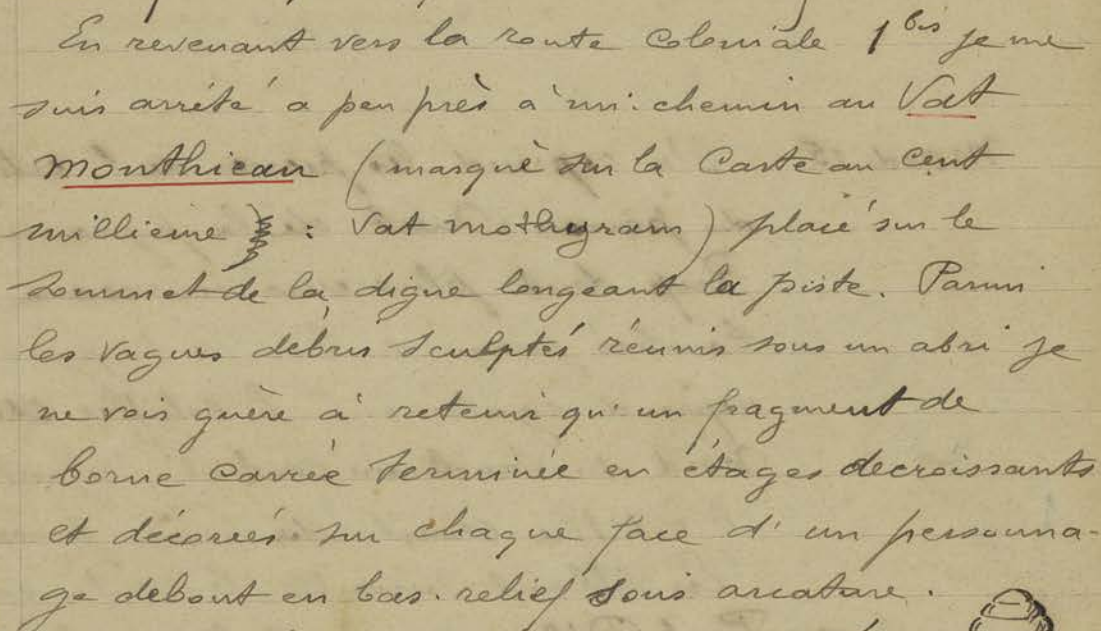 En revenant vers la route Coloniale 1 bis je me
suis arrêté a peu près à mi-chemin au Vat
Monthiean (marqué sur la Carte au Cent
millieme : Vat mothyram) placé sur le
sommet de la digue longeant la piste. Parmi
les vagues débris sculptés réunis sous un abri je
ne vois guère à retenir qu'un fragment de
borne carrée terminée en étages decroissants
et décorés sur chaque face d'un personna-
ge debout en bas-relief sous arcature.